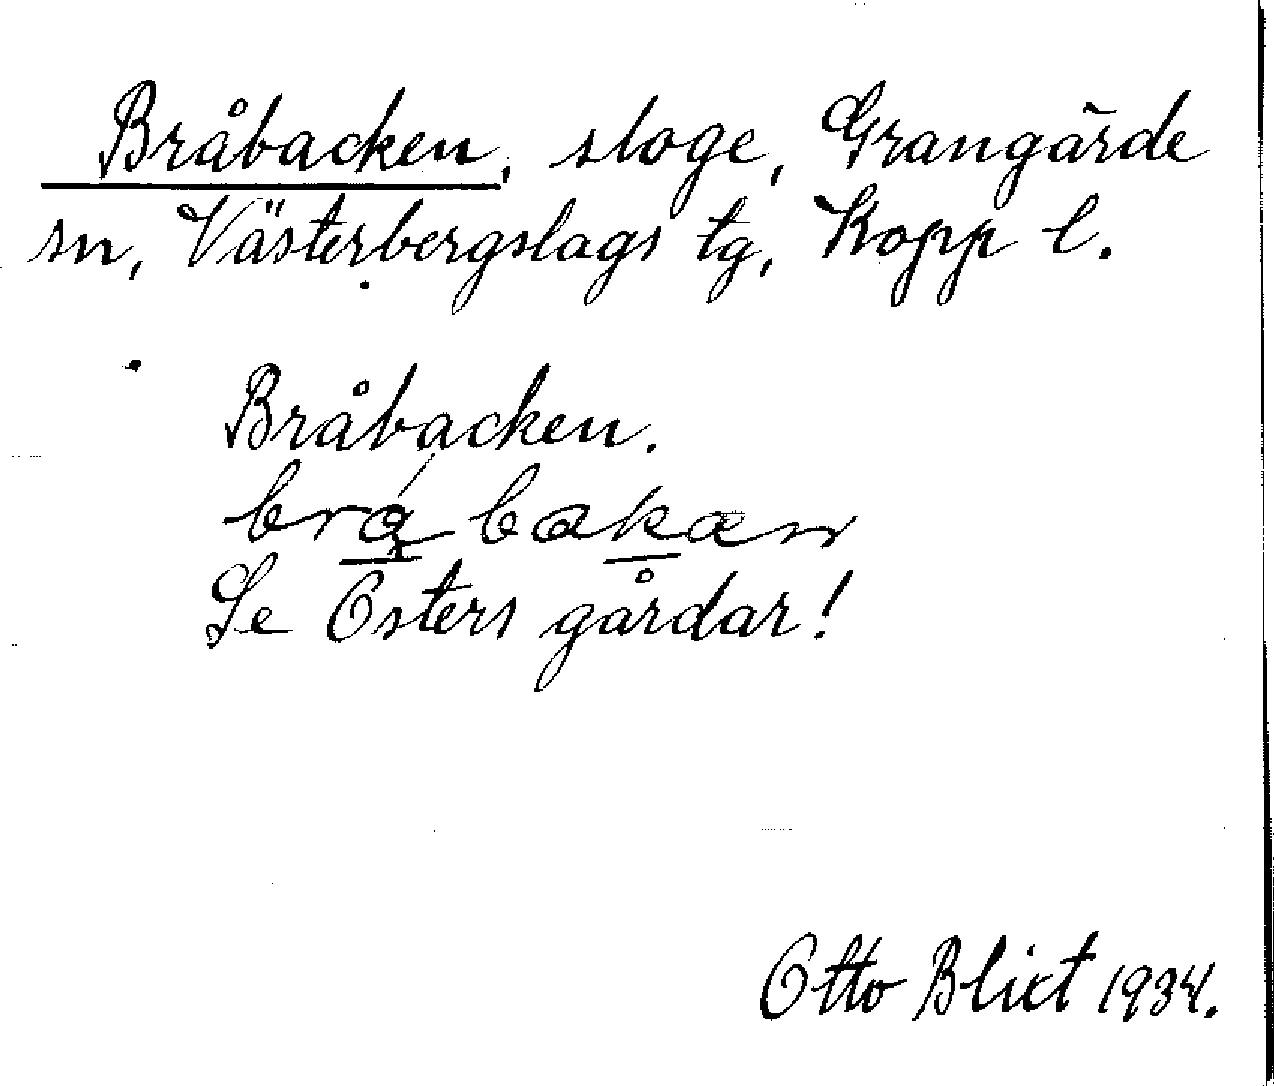 Bråbacken, sloge, Grangärde
sn, Västerbergslags tg, Kopp l.
Bråbacken.
Se Osters gårdar!
Otto Blixt 1934.